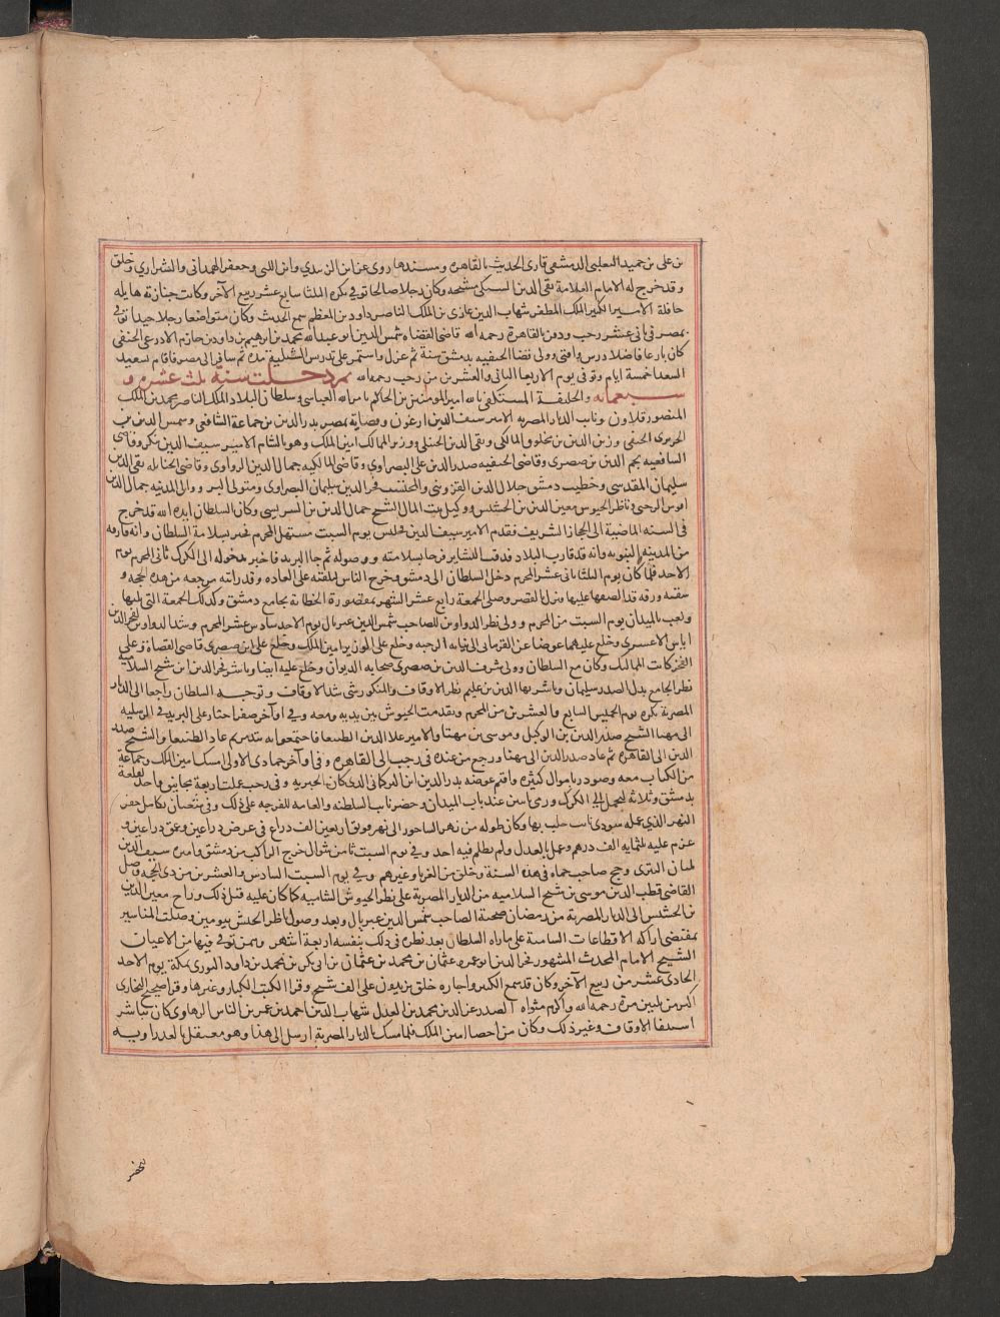 بن على بن حميد الثعلبى الدمشقى قارى الحديث بالقاهرة ومسندها روى عن ابن الزبيدي وابن اللتى وجعفر الهمدانى والشيرازي وخلق
وقد خرج له الامام العلامة تقى الدين السبكى مشيخه وكان رجلا صالحا توفى بكرة الثلثا سابع عشر ربيع الآخر وكانت جنازته هايله
حافلة الامير الكبير الملك المظفر شهاب الدين غازى بن الملك الناصر داود بن المعظم سمع الحديث وكان متواضعا رجلا جيدا توفى
بمصر فى ثانى عشر رجب ودفن بالقاهرة رحمه الله قاضى القضاه شمس الدين ابو عبد الله محمد بن ابرهيم بن داود بن حازم الادرعى الحنفى
كان بارعا فاضلا درس وافتى وولى قضا الحنفيه بدمشق سنة ثم عزل واستمر على تدرس الشبلية مدة ثم سافر الى مصر فاقام بسعيد
السعدا خمسة ايام وتوفى يوم الاربعا الثانى والعشرين من رجب رحمه الله ثم دخلت سنة ثلث عشره و
سبعمائه والخليفة المستكفى بالله امير المومنين بن الحاكم بامر الله العباسى وسلطان البلاد الملك الناصر محمد بن الملك
المنصور قلاون ونايب الديار المصريه الامير سيف الدين ارغون وقضاته بمصر بدر الدين بن جماعة الشافعى وشمس الدين بن
الحريرى الحنفى وزين الدين بن مخلوف المالكى وتقى الدين الحنبلى ووزير الممالك امين الملك وهو بالشام الامير سيف الدين تنكز وقاضى
الشافعيه نجم الدين بن صصرى وقاضى الحنفيه صدر الدين على البصراوي وقاضى المالكيه جمال الدين الزواوى وقاضى الحنابله تقى الدين
سليمان المقدسى وخطيب دمشق جلال الدين القزوينى والمحتسب فخر الدين سليمان البصراوى ومتولى البر ووالى المدينه جمال الدين
اقوش الرحبى وناظر الجيوش معين الدين بن الحشيش ووكيل بيت المال الشيخ جمال الدين بن الشريشى وكان السلطان ايده الله قد خرج
فى السنه الماضية الى الحجاز الشريف فقدم الامير سيف الدين يوم السبت مستهل المحرم مخبر بسلامة السلطان وانه فارقه
من المدينة النبويه وانه قد قارب البلاد فدقت البشاير فرحا بسلامته ووصوله ثم جا البريد فاخبر بدخوله الى الكرك ثانى المحرم يوم
الاحد فلما كان يوم الثلثا ثانى عشر المحرم دخل السلطان الى دمشق وخرج الناس لملقته على العاده وقد راته مرجعه من هذه الحجه و
شفته ورقه قد الصقها عليها ونزل بالقصر وصلى الجمعة رابع عشر الشهر بمقصورة الخطابة بجامع دمشق وكذلك الجمعة التى تليها
ولعب بالميدان يوم السبت من المحرم وولى نظر الدواوين للصاحب شمس الدين عبريال يوم الاحد سادس عشر المحرم وشد الدواوين لفخر الدين
اياس الاعسرى وخلع عليهما عوضا عن القرمانى الى نيابة الرحبه وخلع على الوزير امين الملك وخلع على ابن صصرى قاضى القضاة وعلى
الفخر كاتب المماليك وكان مع السلطان وولى شرف الدين بن صصرى صحابه الديوان وخلع عليه ايضا وباشر فخر الدين ابن شيخ السلاميه
نظر الجامع بدل الصدر سليمان وباشر بها الدين بن عليم نظر الاوقاف والمنكورشى شد الاوقاف وتوجه السلطان راجعا الى الديار
المصرية بكره يوم الخميس السابع والعشرين من المحرم وتقدمت الجيوش بين يديه ومعه وفى اواخر صفر اجتاز على البريد فى الرسليه
الى مهنا الشيخ صدر الدين بن الوكيل وموسى بن مهنا والامير علا الدين الطنبغا فاجتمعوا به بتدمر ثم عاد الطنبغا والشيخ صدر
الدين الى القاهرة ثم عاد صدر الدين الى مهنا ورجع من عنده فى رجب الى القاهره وفى اواخر جمادى الاولى مسك امين الملك وجماعة
من الكتاب معه وصودروا باموال كثيره واقيم عوضه بدر الدين ابن التركمانى الذى كان والى الخزانة وفى رجب عملت اربعة مجانيق واحد لقلعة
بدمشق وثلاثه تحمل الى الكرك ورمى باثنين عند باب الميدان وحضر نايب السلطنه والعامه للفرجه على ذلك وفى شعبان تكامل حفر
النهر الذى عمله سودى نايب حلب بها وكان طوله من نهر الساجور الى نهر قويق اربعين الف ذراع فى عرض ذراعين وعمق ذراعين و
غرم عليه ثلثمايه الف درهم وعمل بالعدل ولم يظلم فيه احد وفى يوم السبت ثامن شوال خرج الركب من دمشق واميره سيف الدين
بلبان التترى وحج صاحب حماه فى هذه السنة وخلق من الغربا وغيرهم وفى يوم السبت السادس والعشرين من ذى الحجه وصل
القاضى قطب الدين موسى بن شيخ السلاميه من الديار المصرية على نظر الجيوش الشاميه كما كان عليه قبل ذلك وراح معين الدين
بن الحشيش الى الديار المصرية من رمضان صحبة الصاحب شمس الدين عبريال وبعد وصول ناظر الجيش بيومين وصلت المناشير
بمقتضى ازالة الاقطاعات الشامية على ما راه السلطان بعد نظره فى ذلك بنفسه اربعة اشهر وممن توفى فيها من الاعيان
الشيخ الامام المحدث المشهور فخر الدين ابو عمرو عثمان بن محمد بن عثمان بن ابى بكر بن محمد بن داود التوزى بمكة يوم الاحد
الحادى عشر من ربيع الآخر وكان قد سمع الكثير واجازه خلق يزيدون على الف شيخ وقرا الكتب الكبار وغيرها وقرا صحيح البخارى
اكثر من ثلثين مرة رحمه الله واكرم مثواه الصدر عز الدين محمد بن العدل شهاب الدين احمد بن عمر بن الناس الرهاوى كان يباشر
استيفا الاوقاف وغير ذلك وكان من اخصا امين الملك فلما مسك بالديار المصرية ارسل الى هذا وهو معتقل بالعذراويه